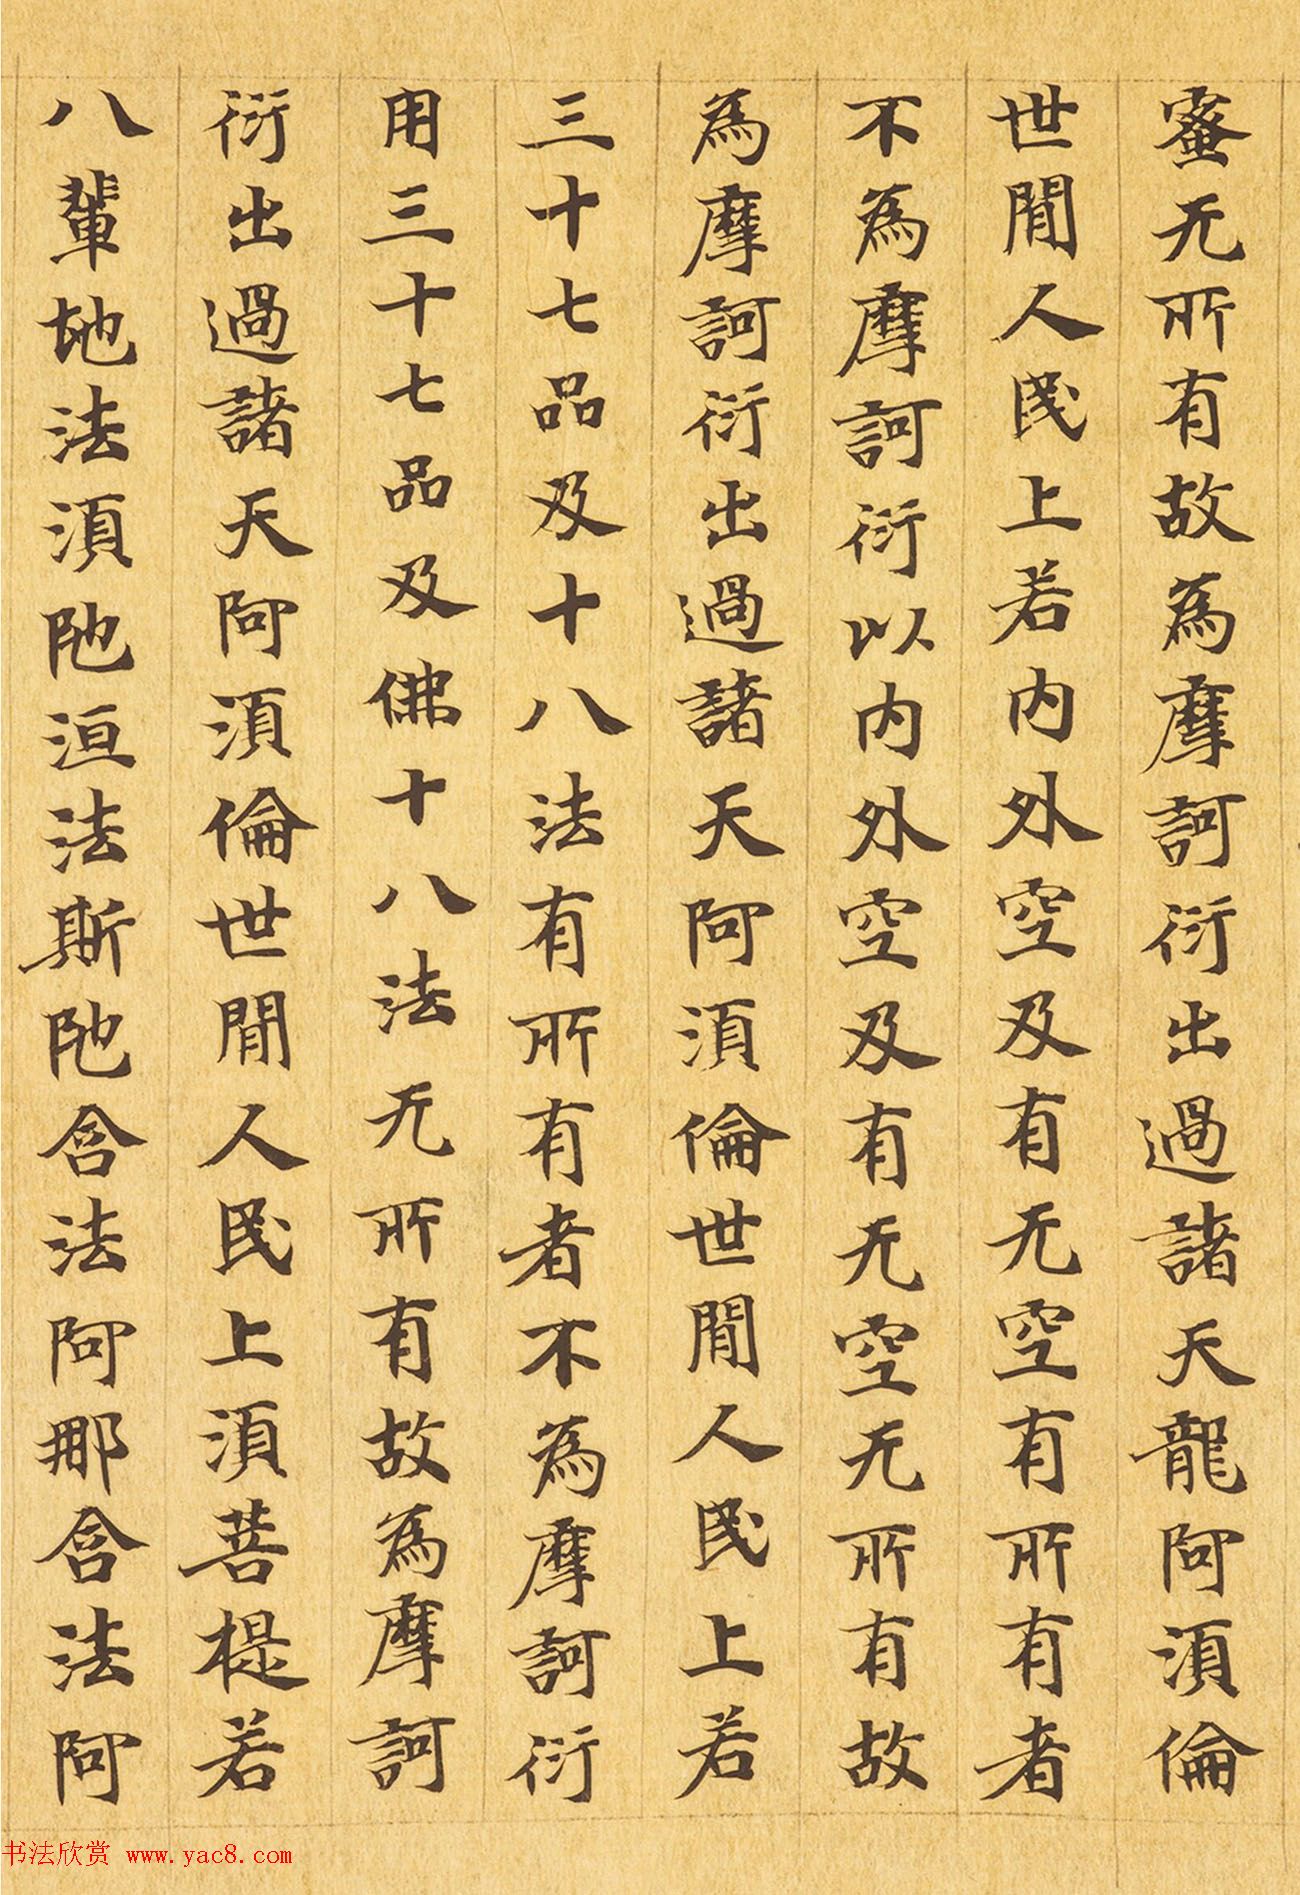 蜜无所有故為摩訶衍出過諸天龍阿須倫
世閒人民上若内外空及有无空有所有者
不為摩訶衍以内外空及有无空无所有故
為摩訶衍出過諸天阿須倫世閒人民上若
三十七品及十八法有所有者不為摩訶衍
用三十七品及佛十八法无所有故為摩訶
衍出過諸天阿須倫世閒人民上須菩提若
八輩地法須陁洹法斯陁含法阿那含法阿
书法欣赏 www.yac8.com